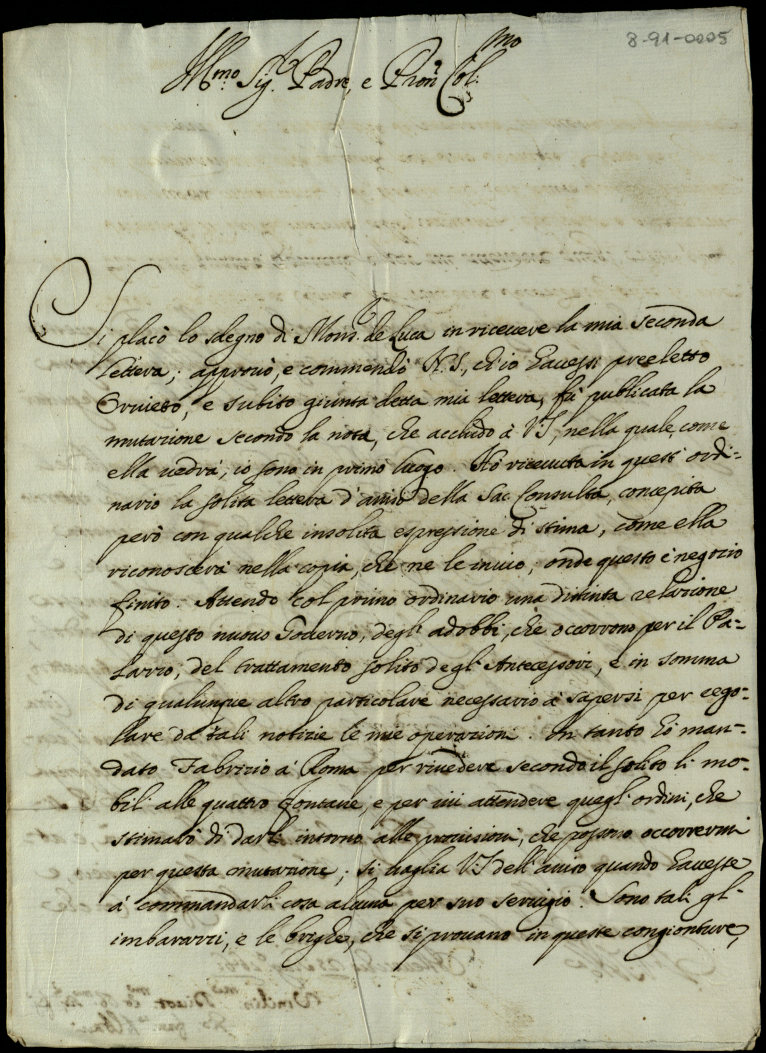 8-91-0005
Ill.mo Sig.r Padre, e Pron Col.mo
Si placò lo sdegno di Mons.r de Luca in ricevere la mia seconda
lettera; approvò, e commendò N.S., ch'io havessi preeletto
Orvieto, e subito giunta detta mia lettera, fù publicata la
mutazione secondo la nota, che acchiudo à V.S., nella quale, come
ella vedrà, io sono in primo luogo. Hò ricevuta in quest' ordi=
nario la solita lettera d'aviso della Sac. Consulta, concepita
però con qualche insolita espressione di stima, come ella
riconoscerà nella copia, che ne le invio, onde questo è negozio
finito. Attendo col primo ordinario una distinta relazione
di questo nuovo Governo, degl' adobbi, che occorrono per il Pa=
lazzo, del trattamento solito degl' Antecessori, e in somma
di qualunque altro particolare necessario à sapersi per rego=
lare da tali notizie le mie operazioni. In tanto hò man=
dato Fabrizio à Roma per rivedere secondo il solito li mo=
bili alle quattro fontane, e per ivi attendere quegl' ordini, che
stimarò di darli intorno alle provisioni, che possono occorrermi
per questa mutazione; si vaglia V.S. dell' aviso quando havesse
à commandarli cosa alcuna per suo servigio. Sono tali gl'
imbarazzi, e le brighe, che si provano in queste congionture,